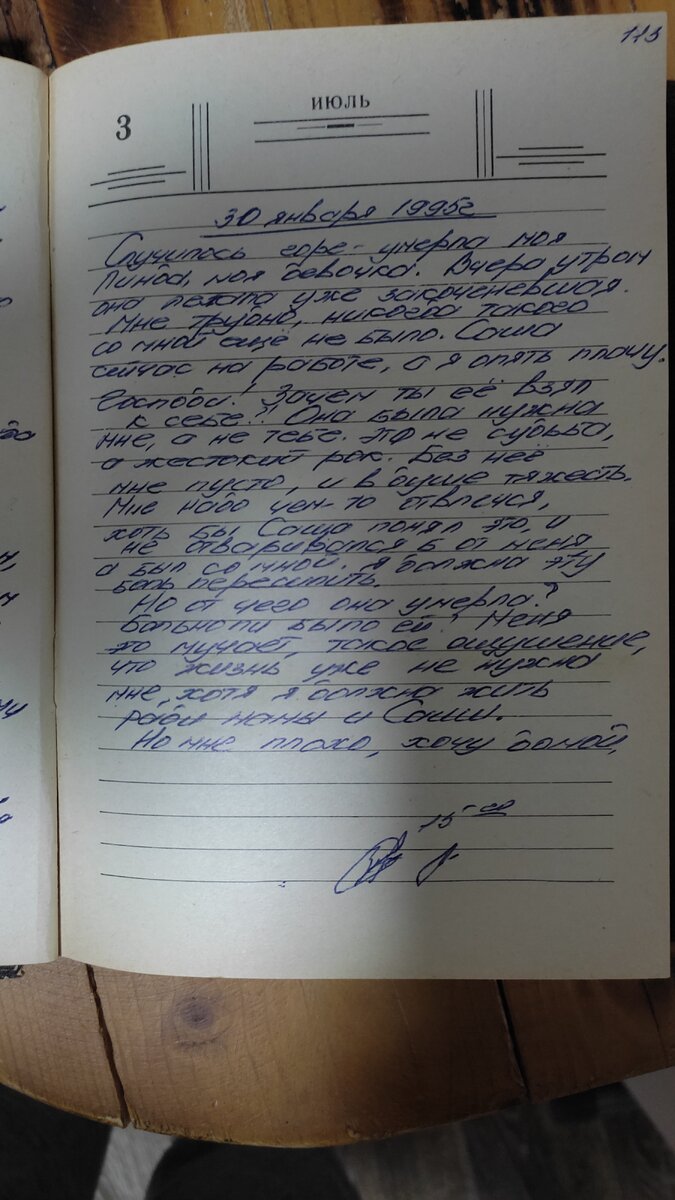 173
3
ИЮЛЬ
30 января 1995г
Случилось горе - умерла моя
Линда, моя девочка. Вчера утром
она лежала уже закоченевшая.
Мне трудно, никогда такого
со мной ещё не было. Саша
сейчас на работе, а я опять плачу.
Господи! Зачем ты её взял
к себе?! Она была нужна
мне, а не тебе. Это не судьба,
а жестокий рок. Без неё
мне пусто, и в душе тяжесть.
Мне надо чем-то отвлечся,
хоть бы Саша понял это и
не отварачивался б от меня,
а был со мной. Я должна эту
боль пересилить.
Но от чего она умерла?
Больно ли было ей? Меня
это мучает, такое ощущение,
что жизнь уже не нужна
мне, хотя я должна жить
ради мамы и Саши.
Но мне плохо, хочу домой,